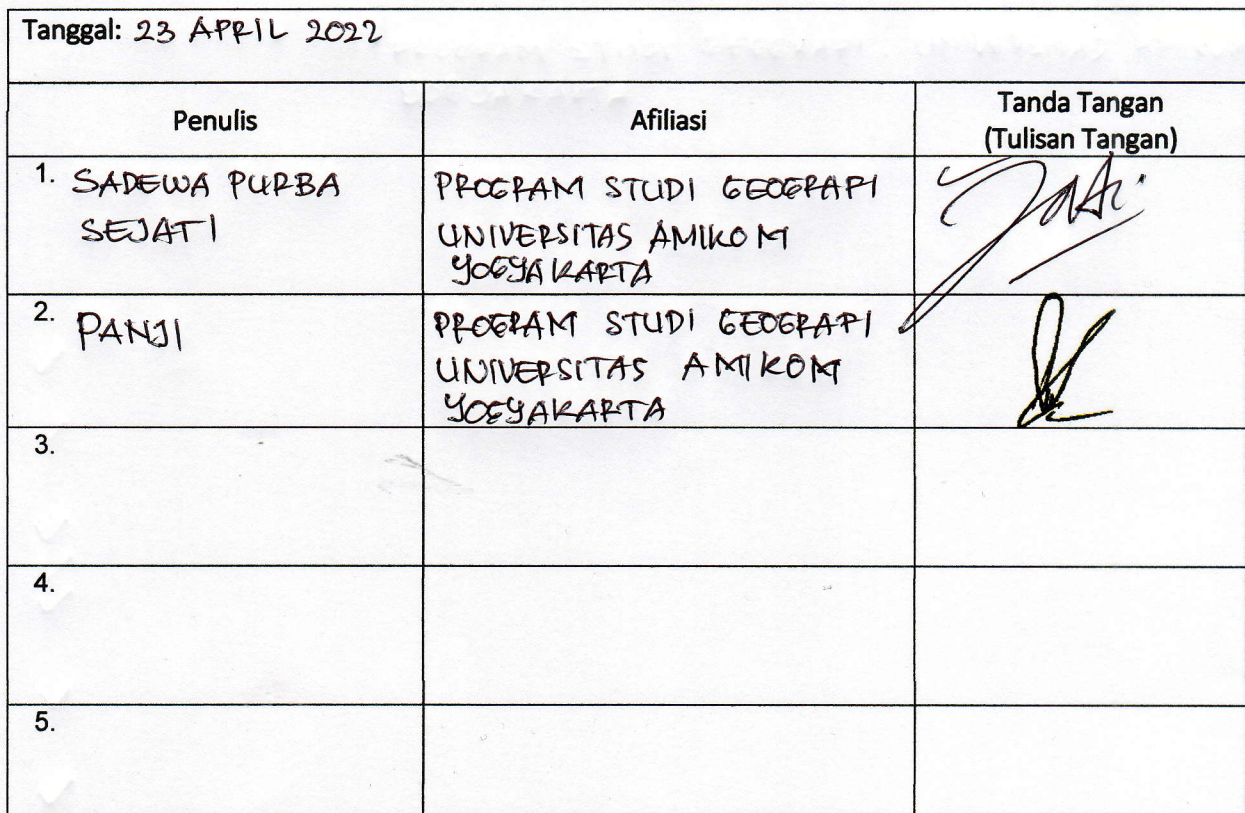 Tanggal: 23 APRIL 2022
Penulis
Afiliasi
Tanda Tangan
(Tulisan Tangan)
1. SADEWA PURBA
SEJATI
PROGRAM STUDI GEOGRAFI
UNIVERSITAS AMIKOM
YOGYAKARTA
2. PANJI
PROGRAM STUDI GEOGRAFI
UNIVERSITAS AMIKOM
YOGYAKARTA
3.
4.
5.